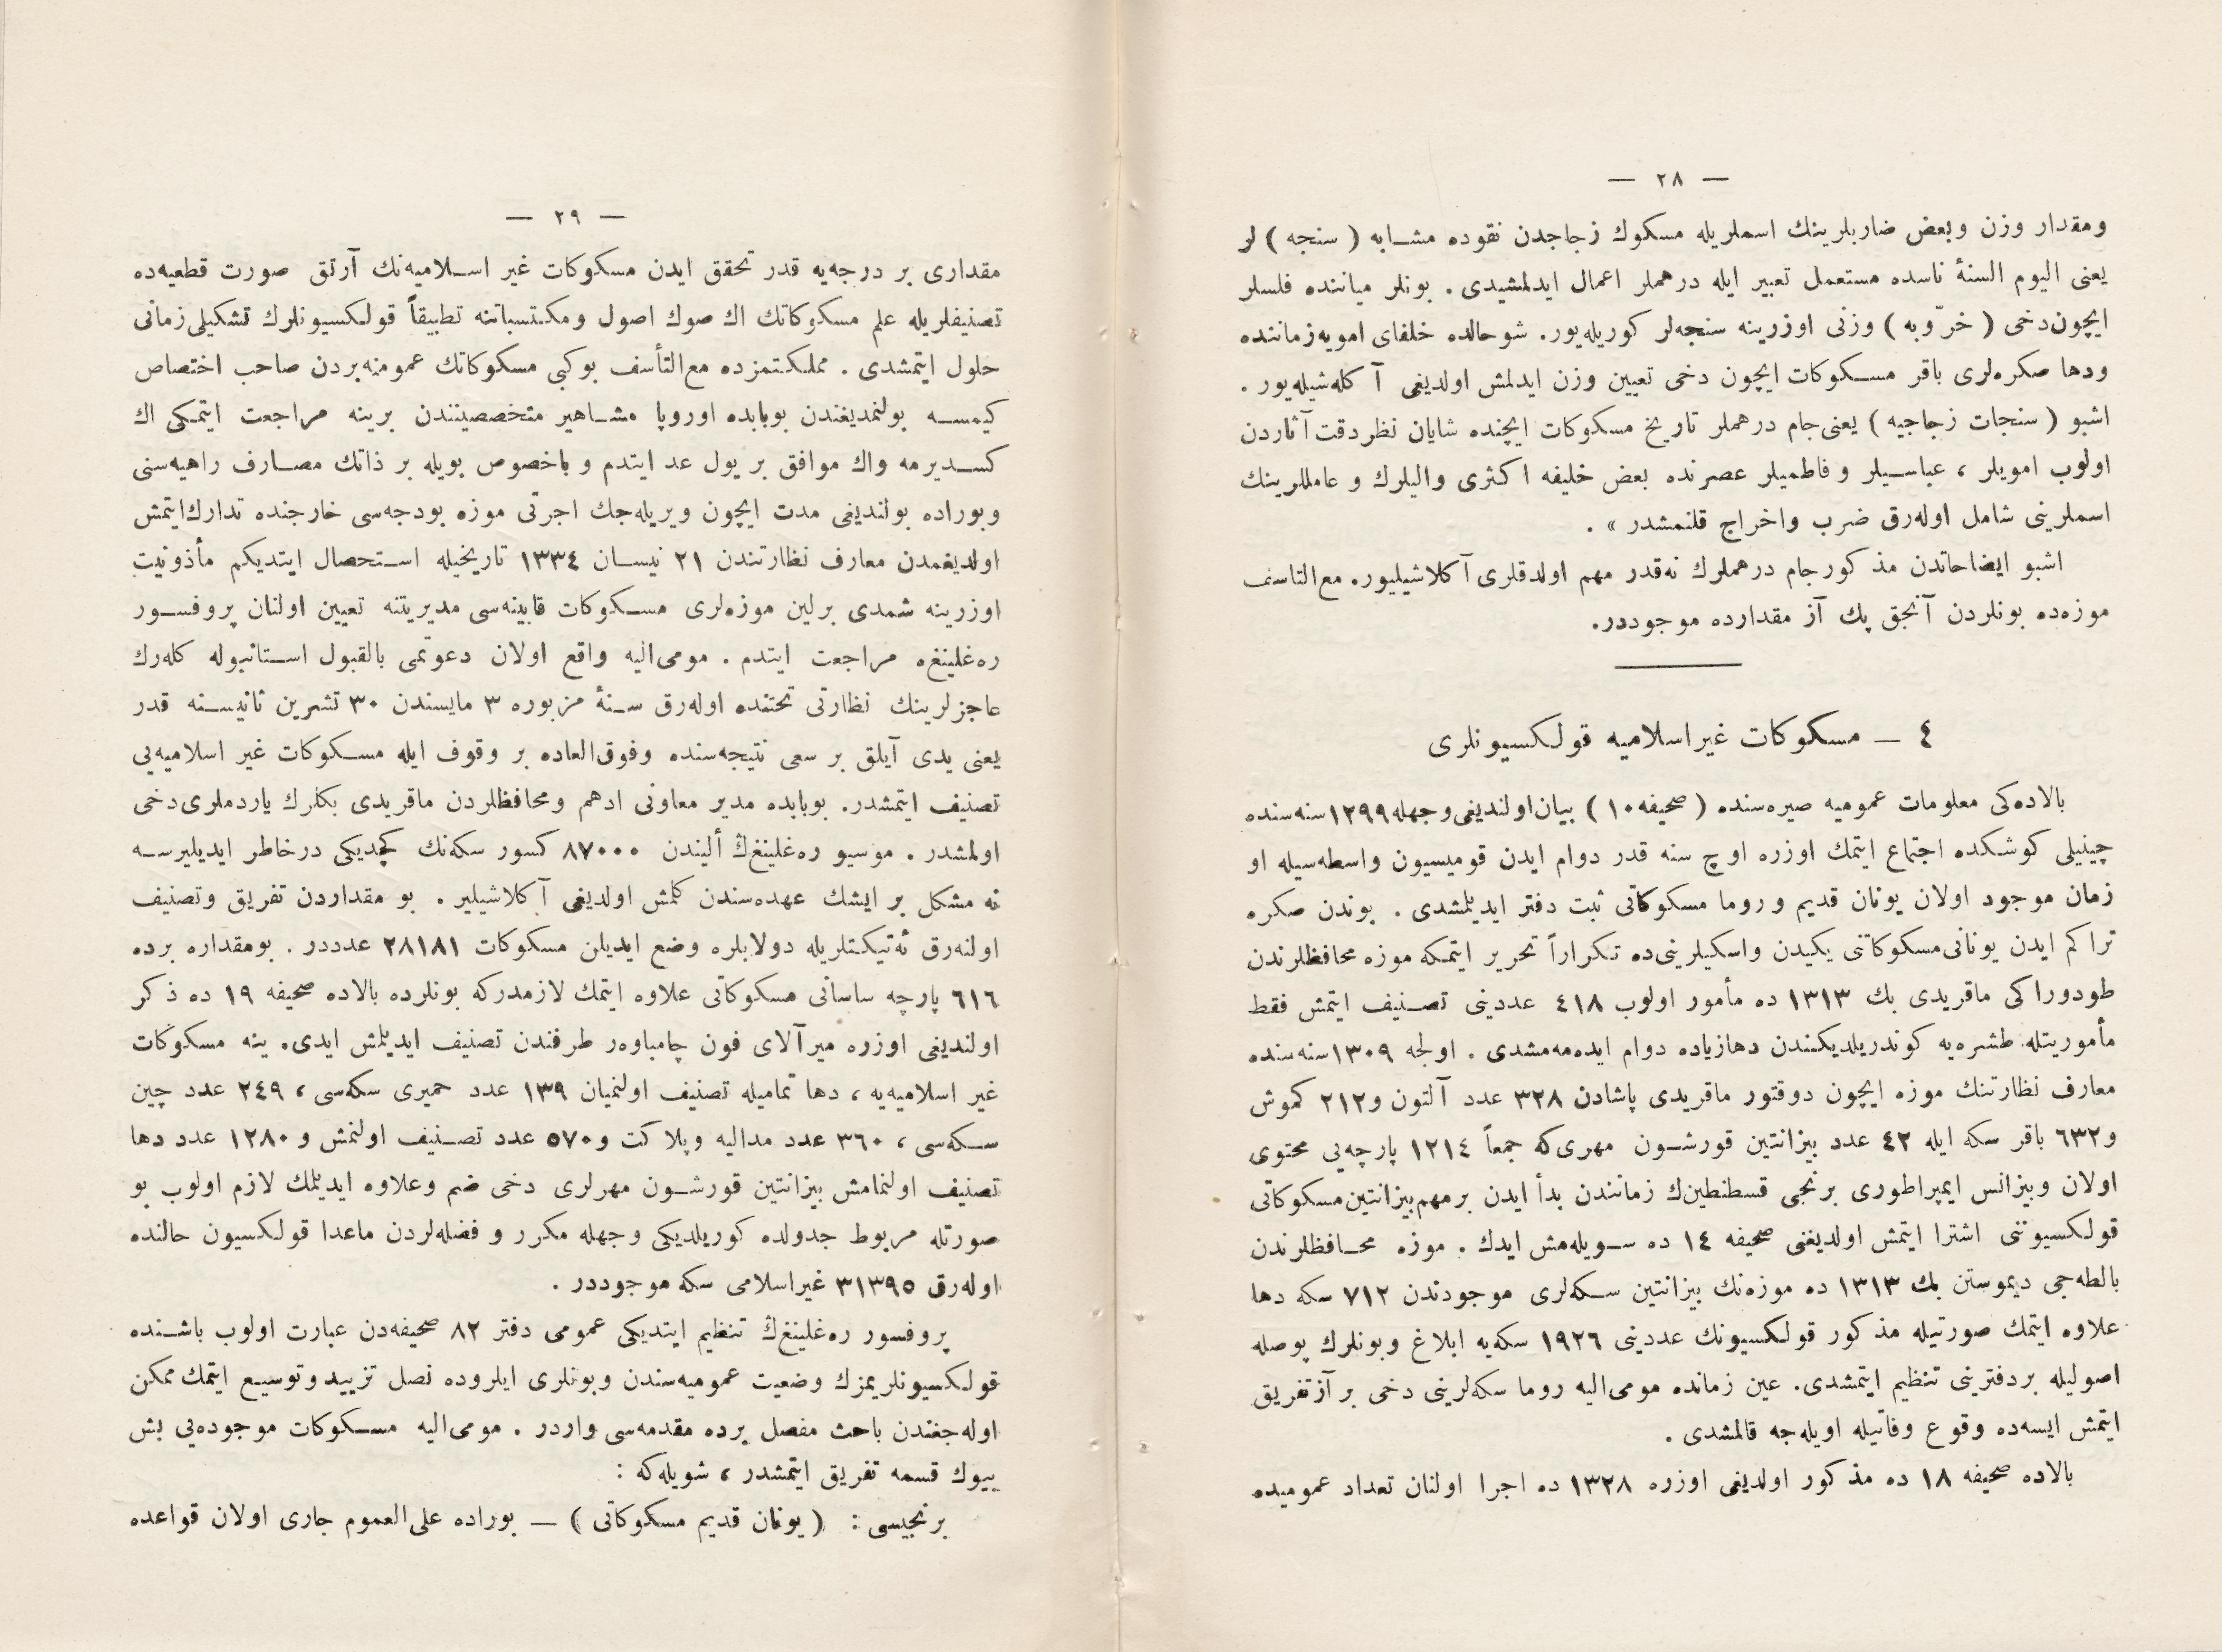 — ٢٨ —
ومقدار وزن وبعض ضاربلرينك اسملريله مسكوك زجاجدن نقوده مشابه ( سنجه ) لر
يعنى اليوم السنۀ ناسده مستعمل تعبير ايله درهملر اعمال ايدلمشيدى . بونلر مياننده فلسلر
ايچون‌دخى ( خرّوبه ) وزنى اوزرينه سنجه‌لر كوريله‌يور. شوحالده خلفاى امويه‌زماننده
ودها صكره‌لرى باقر مسكوكات ايچون دخى تعيين وزن ايدلمش اولديغى آكله‌شيله‌يور .
اشبو ( سنجات زجاجيه ) يعنى‌جام درهملر تاريخ مسكوكات ايچنده شايان نظردقت آثاردن
اولوب امويلر ، عباسيلر وفاطميلر عصرنده بعض خليفه اكثرى واليلرك و عاملل‍رينك
اسملرينى شامل اوله‌رق ضرب واخراج قلنمشدر » .
اشبو ايضاحاتدن مذكورجام درهملرك نه‌قدر مهم اولدقلرى آكلاشيليور. مع‌التاسف
موزه‌ده بونلردن آنجق پك آز مقدارده موجوددر.
٤ — مسكوكات غيراسلاميه قولكسيونلرى
بالاده‌كى معلومات عموميه صيره‌سنده ( صحيفه١٠ ) بيان‌اولنديغى‌وجهله١٢٩٩سنه‌سنده
چينيلى كوشكده اجتماع ايتمك اوزره اوچ سنه قدر دوام ايدن قوميسيون واسطه‌سيله او
زمان موجود اولان يونان قديم وروما مسكوكاتى ثبت دفتر ايديلمشدى . بوندن صكره
تراكم ايدن يونانى‌مسكوكاتنى يكيدن واسكيلرينى‌ده تكراراً تحرير ايتمكه موزه محافظلرندن
طودوراكى ماقريدى بك ١٣١٣ ده مأمور اولوب ٤١٨ عددينى تصنيف ايتمش فقط
مأموريتله طشره‌يه كوندريلديكندن دهازياده دوام ايده‌مه‌مشدى . اولجه ١٣٠٩سنه‌سنده
معارف نظارتنك موزه ايچون دوقتور ماقريدى پاشادن ٣٢٨ عدد آلتون و٢١٢ كموش
و٦٣٢ باقر سكه ايله ٤٢ عدد بيزانتين قورشون مهرى‌كه جمعاً ١٢١٤ پارچه‌يى محتوى
اولان وبيزانس ايمپراطورى برنجى قسطنطين‌ك زمانندن بدأ ايدن برمهم‌بيزانتين‌مسكوكاتى
قولكسيوننى اشترا ايتمش اولديغنى صحيفه ١٤ ده سويله‌مش ايدك . موزه محافظلرندن
بالطه‌جى ديموستن بك ١٣١٣ ده موزه‌نك بيزانتين سكه‌لرى موجودندن ٧١٢ سكه دها
علاوه ايتمك صورتيله مذكور قولكسيونك عددينى ١٩٢٦ سكه‌يه ابلاغ وبونلرك پوصله
اصوليله بردفترينى تنظيم ايتمشدى. عين زمانده مومى‌اليه روما سكه‌لرينى دخى بر آزتفريق
ايتمش ايسه‌ده وقوع وفاتيله اويله‌جه قالمشدى .
بالاده صحيفه ١٨ ده مذكور اولديغى اوزره ١٣٢٨ ده اجرا اولنان تعداد عموميده
— ٢٩ —
مقدارى بر درجه‌يه قدر تحقق ايدن مسكوكات غير اسلاميه‌نك آرتق صورت قطعيه‌ده
تصنيفلريله علم مسكوكاتك اك صوك اصول ومكتسباتنه تطبيقاً قولكسيونلرك تشكيلى‌زمانى
حلول ايتمشدى . مملكتمزده مع‌التأسف بوكبى مسكوكاتك عمومنه‌بردن صاحب اختصاص
كيمسه بولنمديغندن بوبابده اوروپا مشاهير متخصصيندن برينه مراجعت ايتمكى اك
كسديرمه واك موافق بر يول عد ايتدم و باخصوص بويله بر ذاتك مصارف راهيه‌سنى
وبوراده بولنديغى مدت ايچون ويريله‌جك اجرتى موزه بودجه‌سى خارجنده تدارك‌ايتمش
اولديغمدن معارف نظارتندن ٢١ نيسان ١٣٣٤ تاريخيله استحصال ايتديكم مأذونيت
اوزرينه شمدى برلين موزه‌لرى مسكوكات قابينه‌سى مديريتنه تعيين اولنان پروفسور
ره‌غلينغه مراجعت ايتدم . مومى‌اليه واقع اولان دعوتمى بالقبول استانبوله كله‌رك
عاجزلرينك نظارتى تحتنده اوله‌رق سنۀ مزبوره ٣ مايسندن ٣٠ تشرين ثانيسنه قدر
يعنى يدى آيلق بر سعى نتيجه‌سنده وفوق‌العاده بر وقوف ايله مسكوكات غير اسلاميه‌يى
تصنيف ايتمشدر. بوبابده مدير معاونى ادهم ومحافظلردن ماقريدى بكلرك ياردملرى‌دخى
اولمشدر . موسيو ره‌غلينغ‌ڭ أليندن ٨٧٠٠٠ كسور سكه‌نك كچديكى درخاطر ايديليرسه
نه مشكل بر ايشك عهده‌سندن كلمش اولديغى آكلاشيلير . بو مقداردن تفريق وتصنيف
اولنه‌رق ئه‌تيكتلريله دولابلره وضع ايديلن مسكوكات ٢٨١٨١ عدددر . بومقداره برده
٦١٦ پارچه ساسانى مسكوكاتى علاوه ايتمك لازمدركه بونلرده بالاده صحيفه ١٩ ده ذكر
اولنديغى اوزره ميرآلاى فون چامباوه‌ر طرفندن تصنيف ايديلمش ايدى. ينه مسكوكات
غير اسلاميه‌يه ، دها تماميله تصنيف اولنميان ١٣٩ عدد حميرى سكه‌سى ، ٢٤٩ عدد چين
سكه‌سى ، ٣٦٠ عدد مداليه وپلاكت و٥٧٠ عدد تصنيف اولنمش و١٢٨٠ عدد دها
تصنيف اولنمامش بيزانتين قورشون مهرلرى دخى ضم وعلاوه ايديلمك لازم اولوب بو
صورتله مربوط جدولده كوريلديكى وجهله مكرر و فضله‌لردن ماعدا قولكسيون حالنده
اوله‌رق ٣١٣٩٥ غيراسلامى سكه موجوددر .
پروفسور ره‌غلينغ‌ڭ تنظيم ايتديكى عمومى دفتر ٨٢ صحيفه‌دن عبارت اولوب باشنده
قولكسيونلريمزك وضعيت عموميه‌سندن وبونلرى ايلروده نصل تزييد وتوسيع ايتمك ممكن
اوله‌جغندن باحث مفصل برده مقدمه‌سى واردر . مومى‌اليه مسكوكات موجوده‌يى بش
بيوك قسمه تفريق ايتمشدر ، شويله‌كه :
برنجيسى : ( يونان قديم مسكوكاتى ) — بوراده على‌العموم جارى اولان قواعده